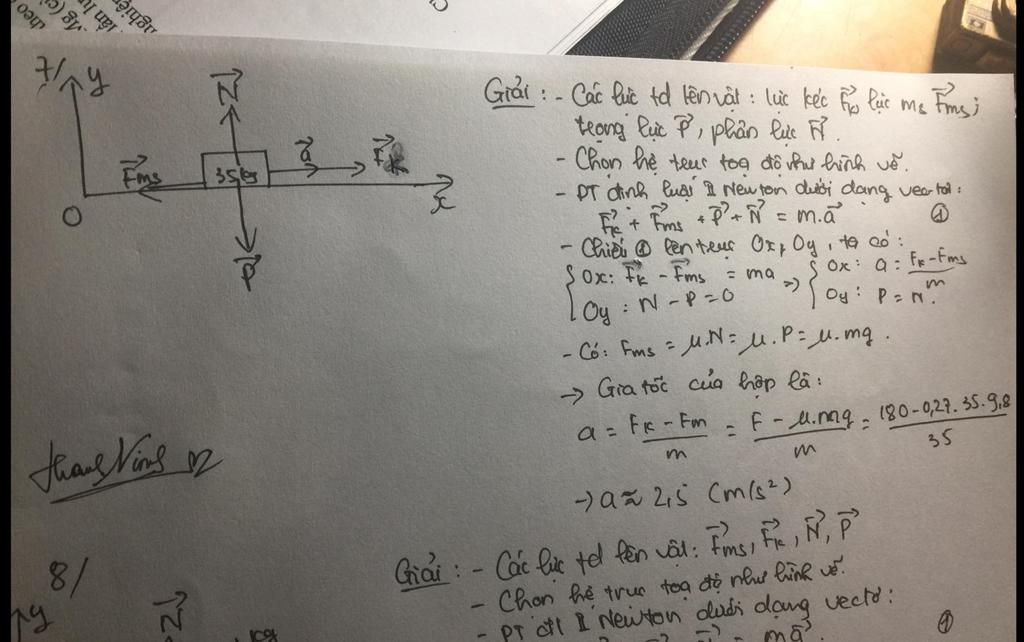 7/
y
N
Fms
35kg
a
Fk
O
x
P
Giải : - Các lực td lên vật : lực kéo Fk, lực ms Fms;
trọng lực P, phản lực N.
- Chọn hệ trục toạ độ như hình vẽ.
- PT định luật II Newton dưới dạng vectơ:
Fk + Fms + P + N = m.a ①
- Chiếu ① lên trục Ox, Oy, ta có:
{ Ox: Fk - Fms = ma => { Ox: a = Fk-Fms/m
Oy : N - P = 0 Oy: P = N.
- Có: Fms = μ.N = μ.P = μ.mg.
→ Gia tốc của hộp là:
a = Fk - Fm/m = F - μ.mg/m = 180-0,27.35.9,8/35
→ a ≈ 2,5 (m/s²)
8/
y
N
Giải : - Các lực td lên vật: Fms, Fk, N, P
- Chọn hệ trục toạ độ như hình vẽ.
- PT đl II Newton dưới dạng vectơ:
N = ma ①